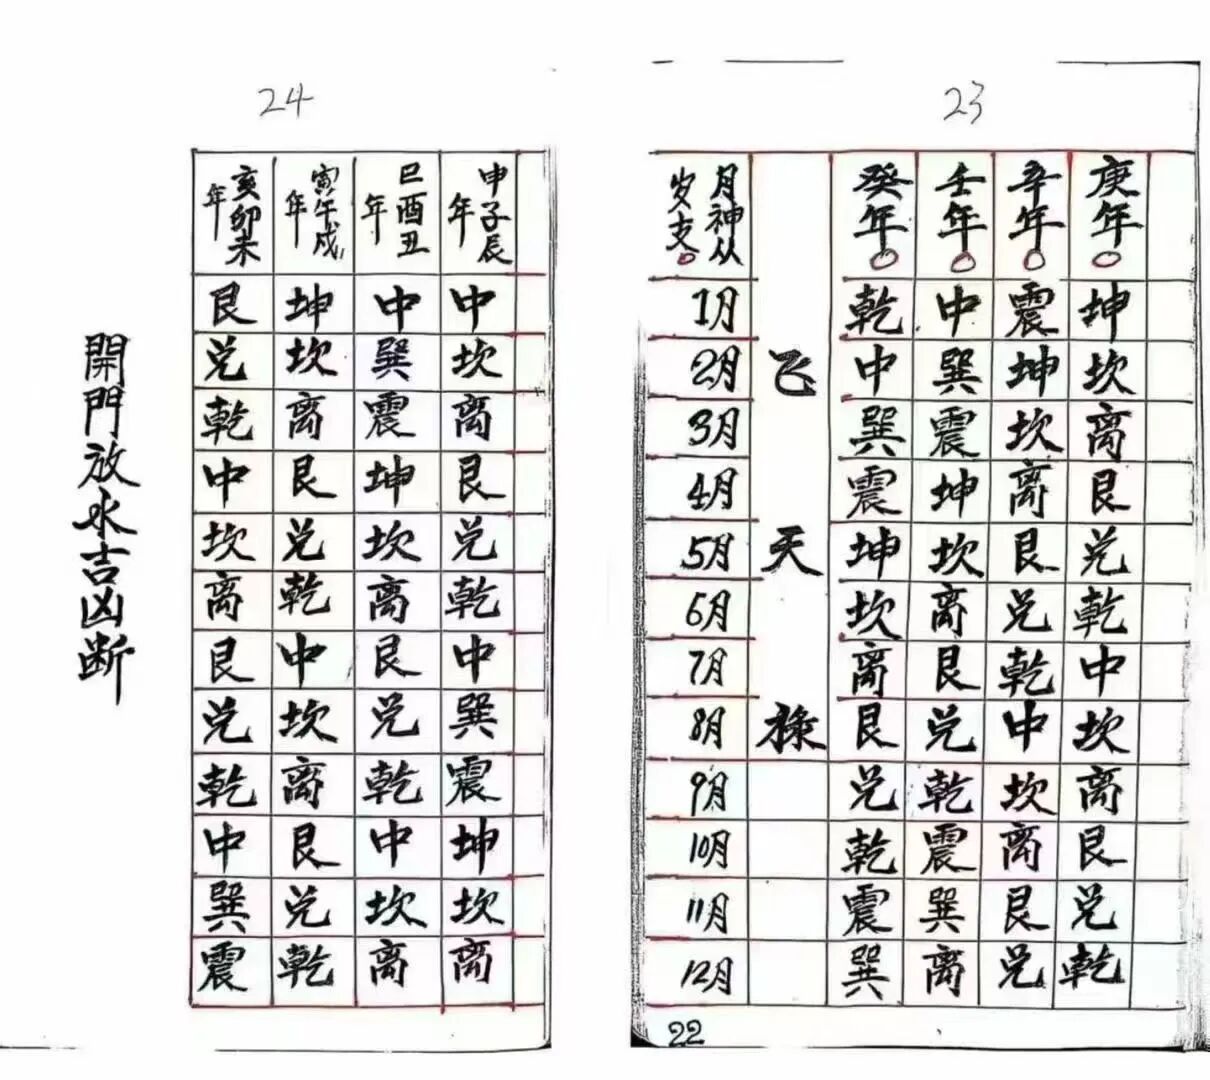 23
庚年○ 坤 坎 离 艮 兑 乾 中 坎 离 艮 兑 乾
辛年○ 震 坤 坎 离 艮 兑 乾 中 坎 离 艮 兑
壬年○ 中 巽 震 坤 坎 离 艮 兑 乾 震 巽 离
癸年○ 乾 中 巽 震 坤 坎 离 艮 兑 乾 震 巽
飞天禄
月神从
岁支○
1月 2月 3月 4月 5月 6月 7月 8月 9月 10月 11月 12月
22
24
申子辰年 中 坎 离 艮 兑 乾 中 巽 震 坤 坎 离
巳酉丑年 中 巽 震 坤 坎 离 艮 兑 乾 中 坎 离
寅午戌年 坤 坎 离 艮 兑 乾 中 坎 离 艮 兑 乾
亥卯未年 艮 兑 乾 中 坎 离 艮 兑 乾 中 巽 震
開門放水吉凶断